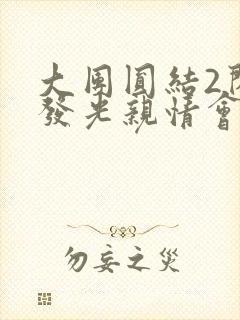 大團圓結2
發光親情會
勿妄之災